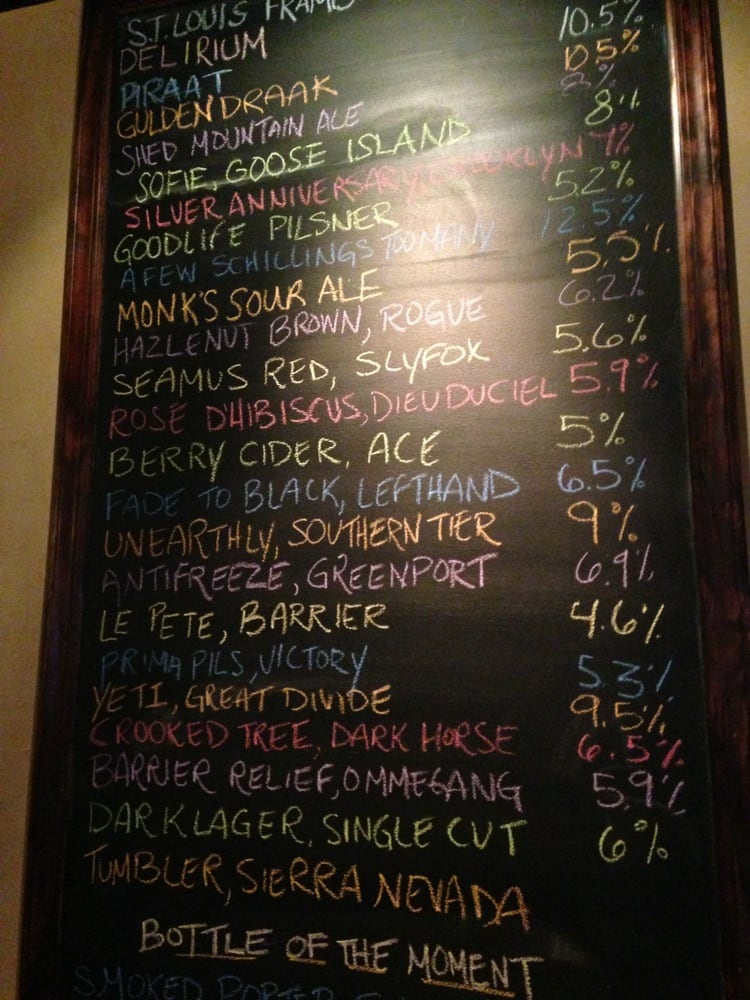 S.T. LOUIS FRAMB
DELIRIUM
PIRAAT 10.5%
GULDEN DRAAK 10.5%
SHED MOUNTAIN ALE
SOFIE, GOOSE ISLAND 8%
SILVER ANNIVERSARY, BROOKLYN 7%
GOODLIFE PILSNER 5.2%
A FEW SCHILLINGS TOO MANY 12.5%
MONK'S SOUR ALE 5.5%
HAZLENUT BROWN, ROGUE 6.2%
SEAMUS RED, SLYFOX 5.6%
ROSE D'HIBISCUS, DIEU DU CIEL 5.9%
BERRY CIDER, ACE 5%
FADE TO BLACK, LEFTHAND 6.5%
UNEARTHLY, SOUTHERN TIER 9%
ANTIFREEZE, GREENPORT 6.9%
LE PETE, BARRIER 4.6%
PRIMA PILS, VICTORY 5.3%
YETI, GREAT DIVIDE 9.5%
CROOKED TREE, DARK HORSE 6.5%
BARRIER RELIEF, OMMEGANG 5.9%
DARK LAGER, SINGLE CUT 6%
TUMBLER, SIERRA NEVADA
BOTTLE OF THE MOMENT
SMOKED PORTER